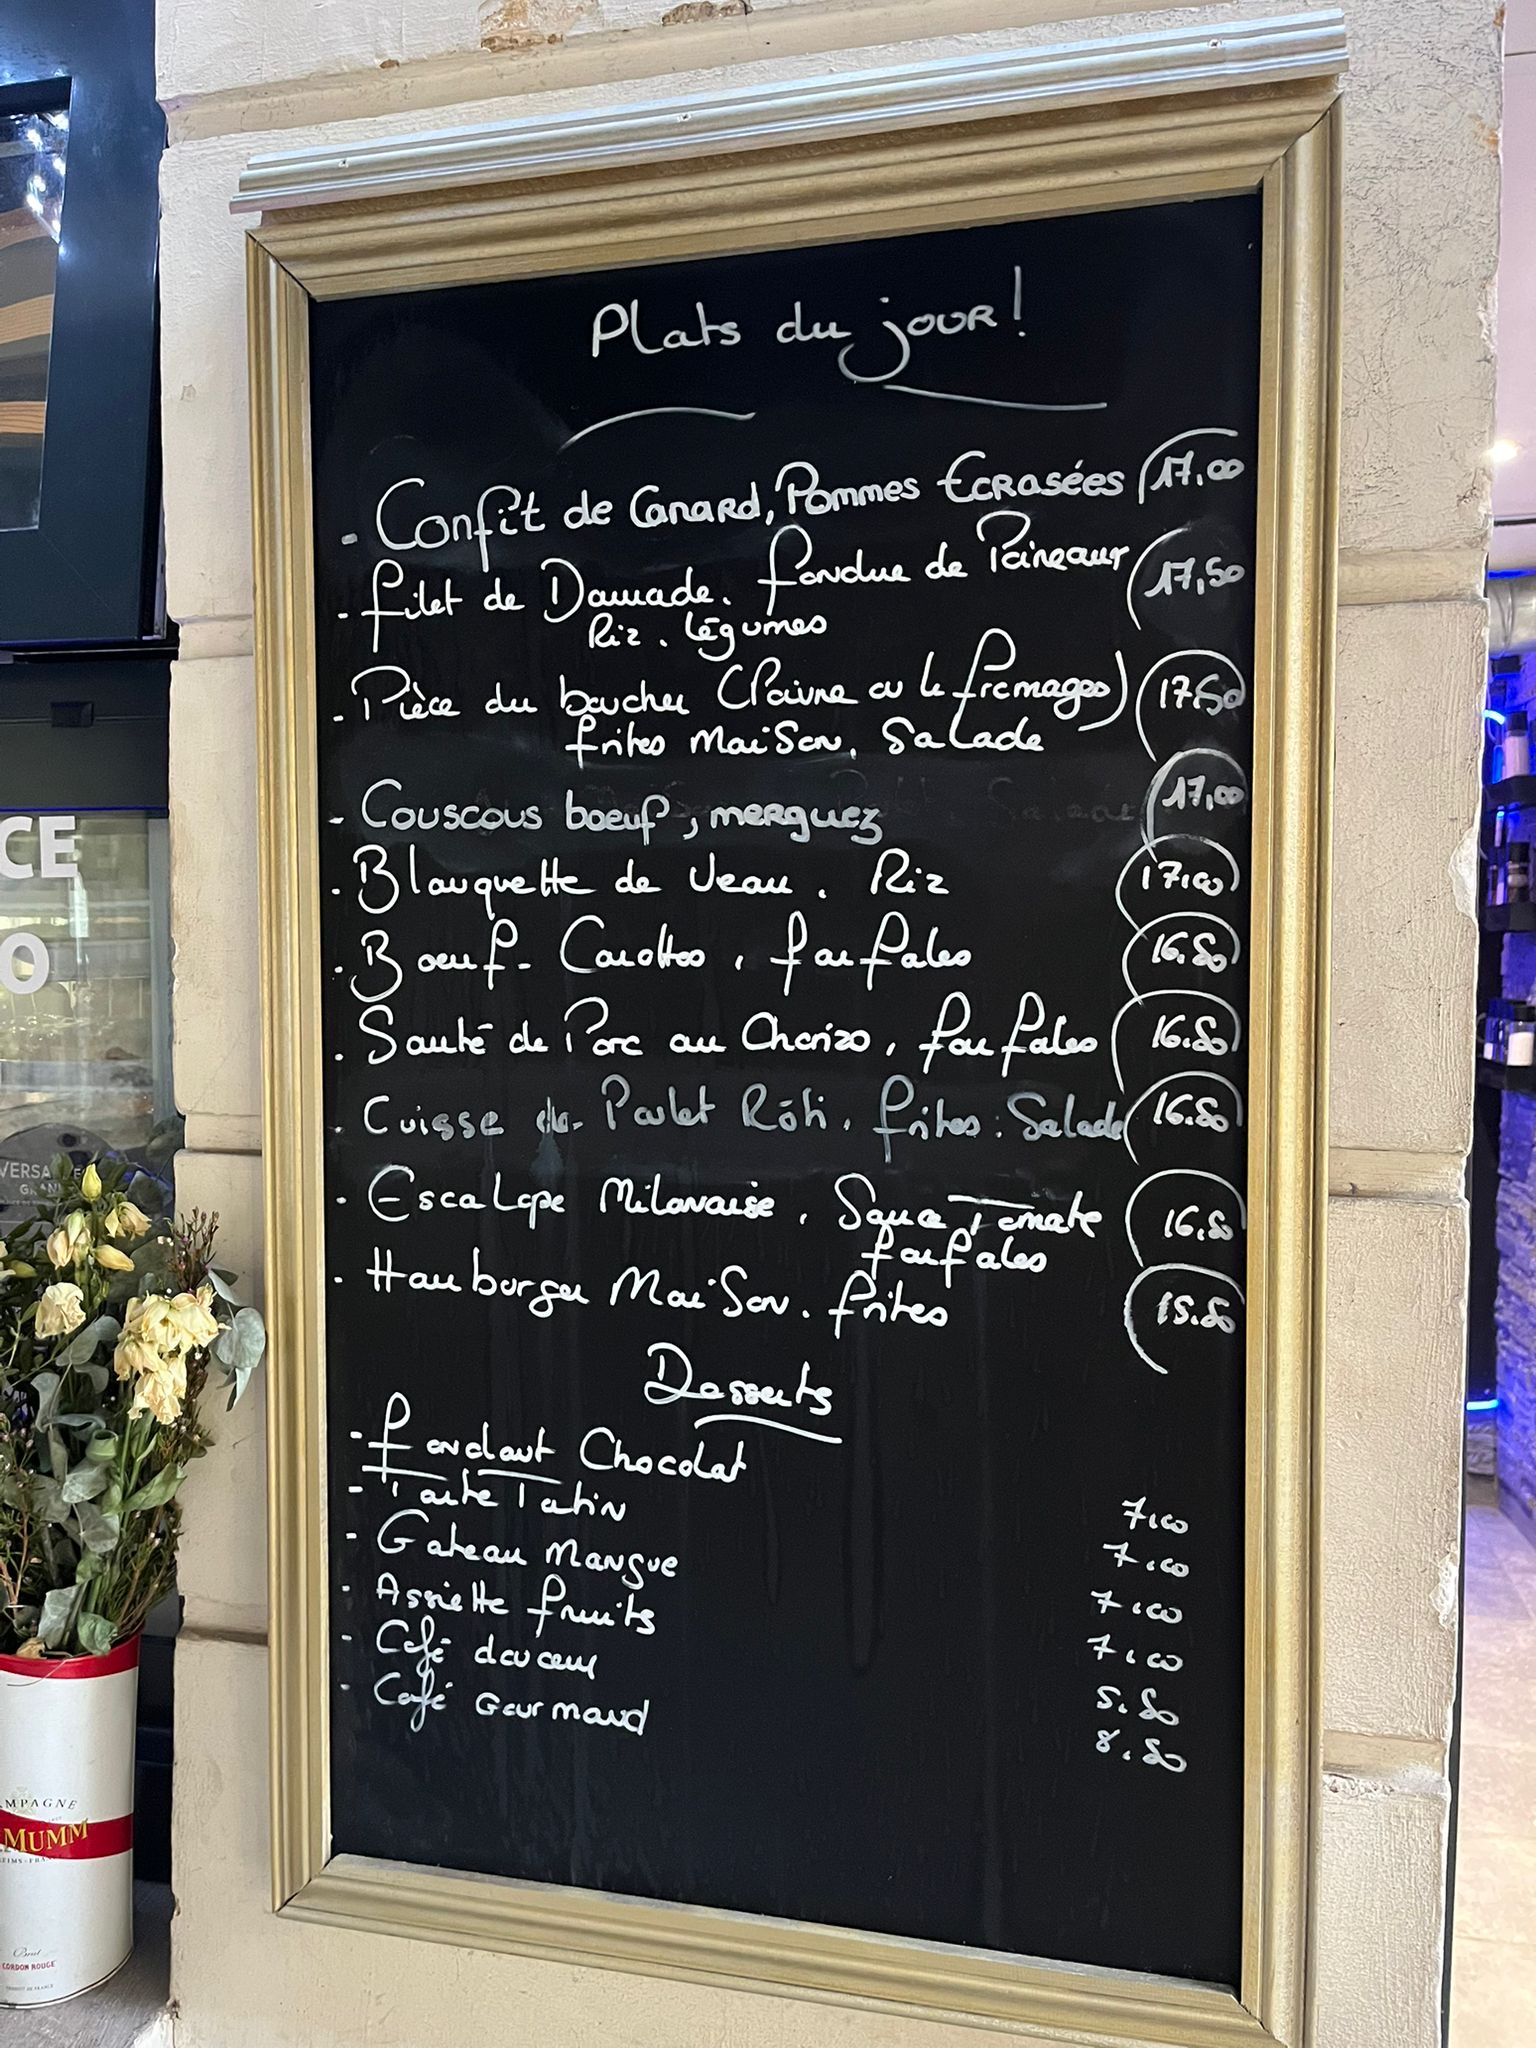 Plats du jour!
- Confit de Canard, Pommes Ecrasées 17,00
- filet de Daurade. fondue de Poireaux 17,50
Riz. légumes
- Pièce du boucher (Poivre ou le fromages) 17.50
frites MaiSon, Salade
- Couscous boeuf, merguez 17,00
. Blanquette de Veau. Riz 17.00
. Boeuf- Carottes, farfales 16.80
. Sauté de Porc au Chorizo, farfales 16.80
. Cuisse de Poulet Rôti. frites. Salade 16.80
- Escalope Milanaise. Sauce Tomate 16.80
farfales
. Hamburger MaiSon. frites 15.80
Desserts
- fondant Chocolat 7.00
- Tarte Tatin 7.00
- Gateau Mangue 7.00
. Assiette fruits 7.00
. Café douceur 5.80
. Café Gourmand 8.80
CE
O
VERSA
GRAN
MPAGNE
MUMM
REIMS-FRA
Brut
CORDON ROUGE
PRODUIT DE FRANCE